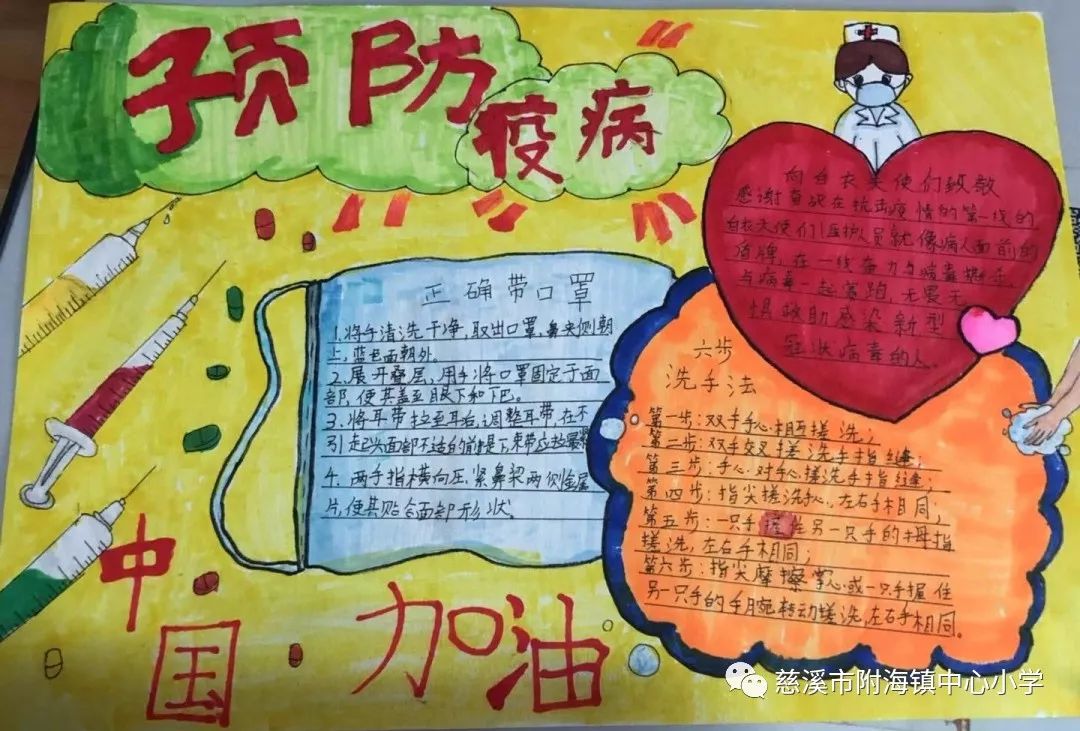 预防
疫病
向白衣天使们致敬
感谢奋战在抗击疫情的第一线的
白衣天使们!医护人员就像病人面前的
盾牌,在一线奋力与病毒搏斗,
与病毒一起赛跑,无畏无
惧救助感染新型
冠状病毒的人。
正确带口罩
1.将手清洗干净,取出口罩,鼻夹侧朝
上,蓝色面朝外。
2.展开叠层,用手将口罩固定于面
部,使其盖至眼下和下巴。
3.将耳带拉至耳后,调整耳带,在不
引起头面部不适的前提下束带应拉紧
4.两手指横向压紧鼻梁两侧金属
片,使其贴合面部形状。
六步
洗手法
第一步:双手手心相互搓洗;
第二步:双手交叉搓洗手指缝;
第三步:手心对手心搓洗手指缝;
第四步:指尖搓洗手心,左右手相同;
第五步:一只手握住另一只手的拇指
搓洗,左右手相同;
第六步:指尖摩擦掌心或一只手握住
另一只手的手腕转动搓洗,左右手相同。
中国
加油
慈溪市附海镇中心小学